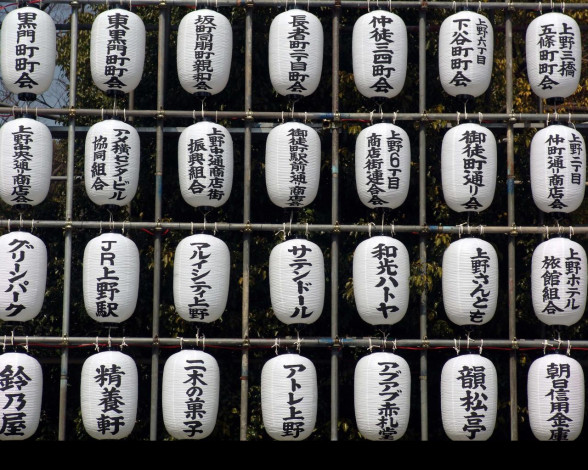 黒門町町会
東黒門町町会
坂町同朋町親和会
長者町一丁目町会
仲徒三四町会
上野六丁目
下谷町町会
上野三橋
五條町町会
上野中央通り商店会
アメ横センタービル
協同組合
上野中通商店街
振興組合
御徒町駅前通り商店会
上野6丁目
商店街連合会
御徒町通り会
上野二丁目
仲町通り商店会
グリーンパーク
JR上野駅
マルイシティ上野
サテンドール
和光ハトヤ
上野さんども
上野ホテル
旅館組合
鈴乃屋
精養軒
二木の菓子
アトレ上野
アブアブ赤札堂
韻松亭
朝日信用金庫